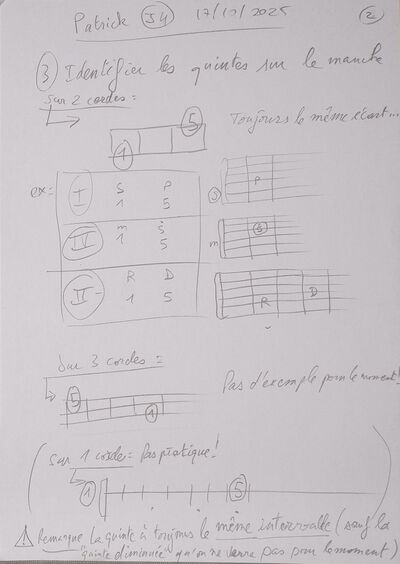 Patrick J4 17/10/2025 2
3 Identifier les quintes sur le manche
Sur 2 cordes =
Toujours le même écart...
5
1
ex =
I S P
1 5
P
S
IV m s
1 5
S
m
II- R D
1 5
D
R
Sur 3 cordes =
Pas d'exemple pour le moment!
5
1
(Sur 1 corde = Pas pratique!
1 5
⚠ Remarque La quinte a toujours le même intervalle (sauf la
"quinte diminuée" qu'on ne verra pas pour le moment)